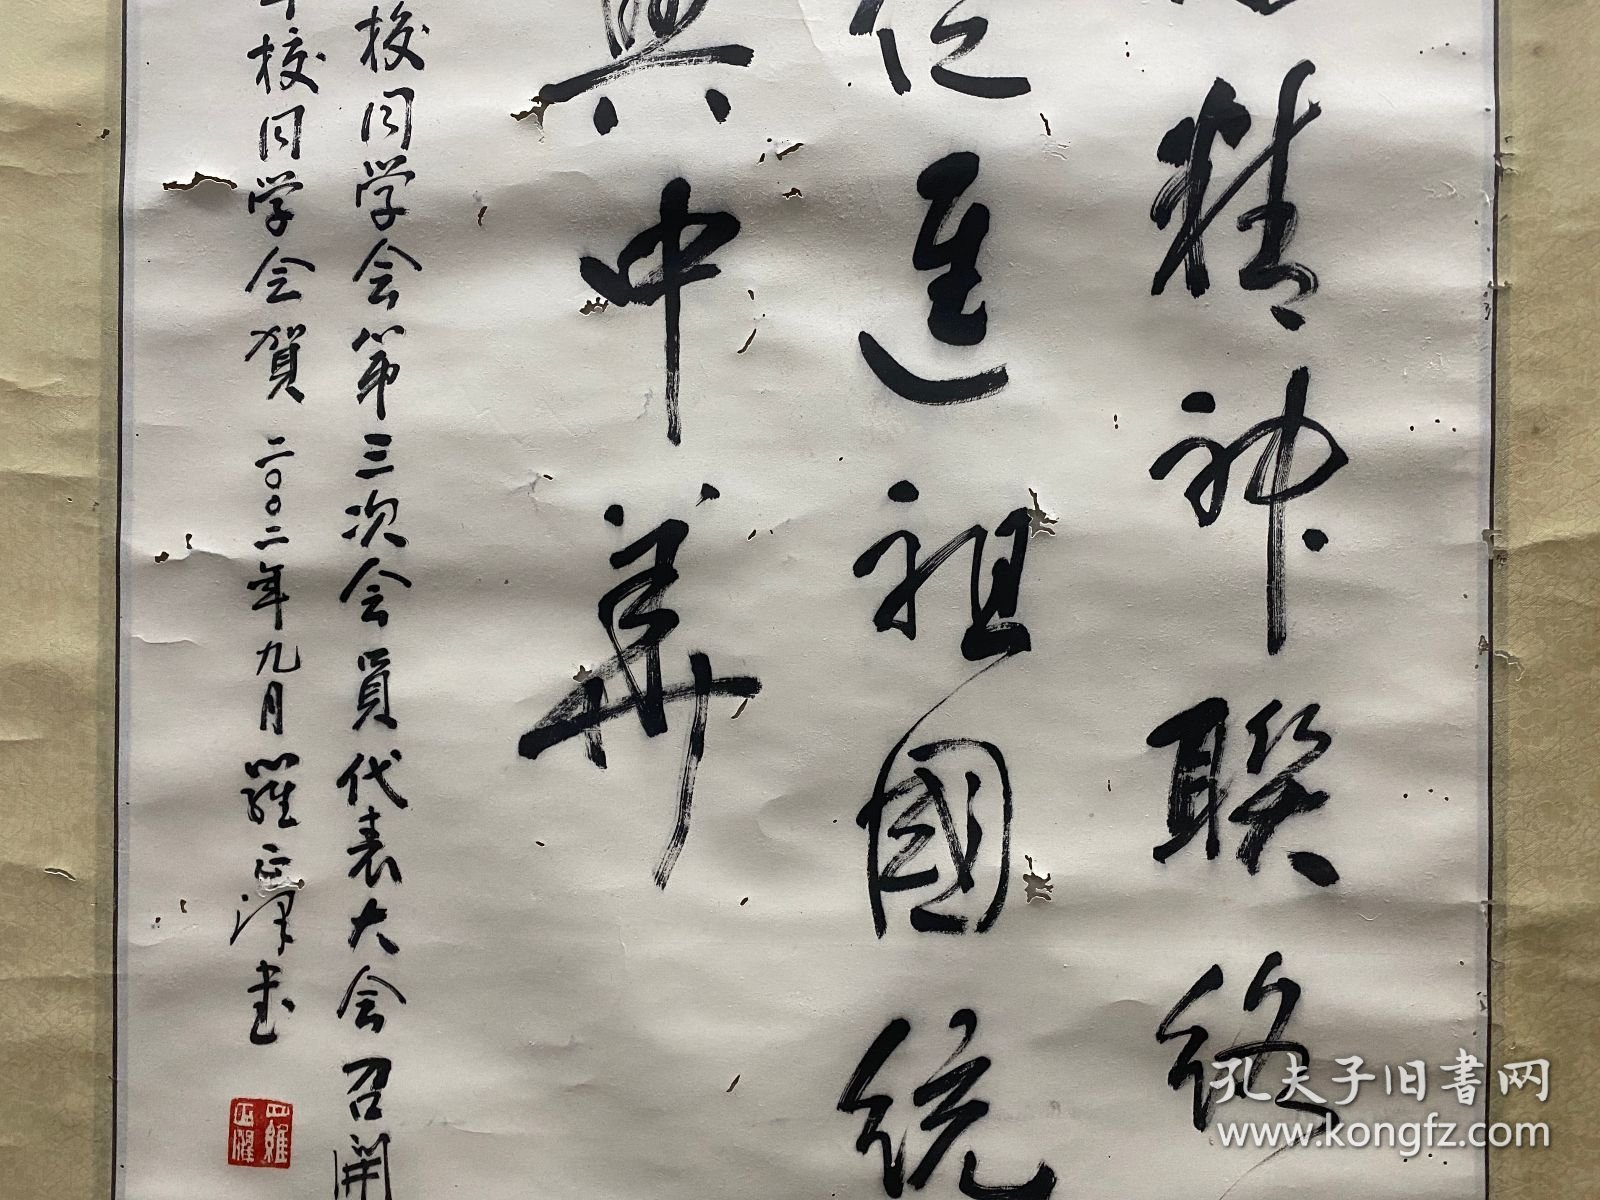 精神聯絡
進祖國統
興中華
校同学会第三次会員代表大会召開
校同学会賀 二〇〇二年九月 羅正澤书
孔夫子旧書网
www.kongfz.com